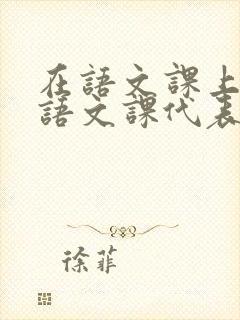 在語文課上
語文課代表
徐菲